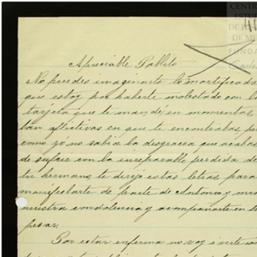 Apreciable Pablito
No puedes imaginarte lo mortificada
que estoy por haberte molestado con la
tarjeta que te mandé en momentos
tan aflictivos en que te encontrabas pero
como yo no sabía la desgracia que acabas
de sufrir con la irreparable perdida de
tu hermano te dirijo estas letras para
manifestarte de parte de Antonio y mia
nuestra condolencia y acompañarte en tu
pesar.
Por estar enferma no voy a verte